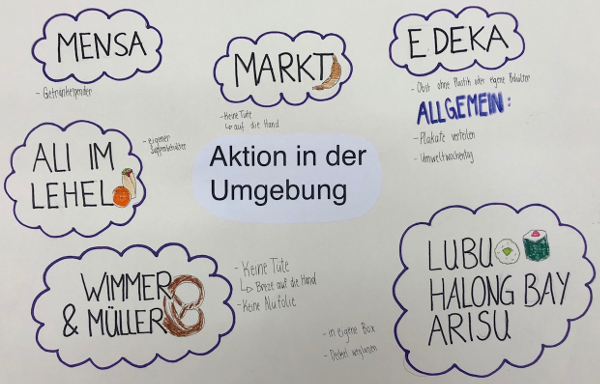 MENSA
- Getränkespender
MARKT
- Keine Tüte
↳ auf die Hand
EDEKA
- Obst ohne Plastik oder eigene Behälter
ALLGEMEIN:
- Plakate verteilen
- Umweltwochentag
ALI IM
LEHEL
- eigener
Suppenbehälter
Aktion in der
Umgebung
WIMMER
& MÜLLER
- Keine Tüte
↳ Breze auf die Hand
- Keine Alufolie
LUBU
HALONG BAY
ARISU
- in eigene Box
- Deckel weglassen